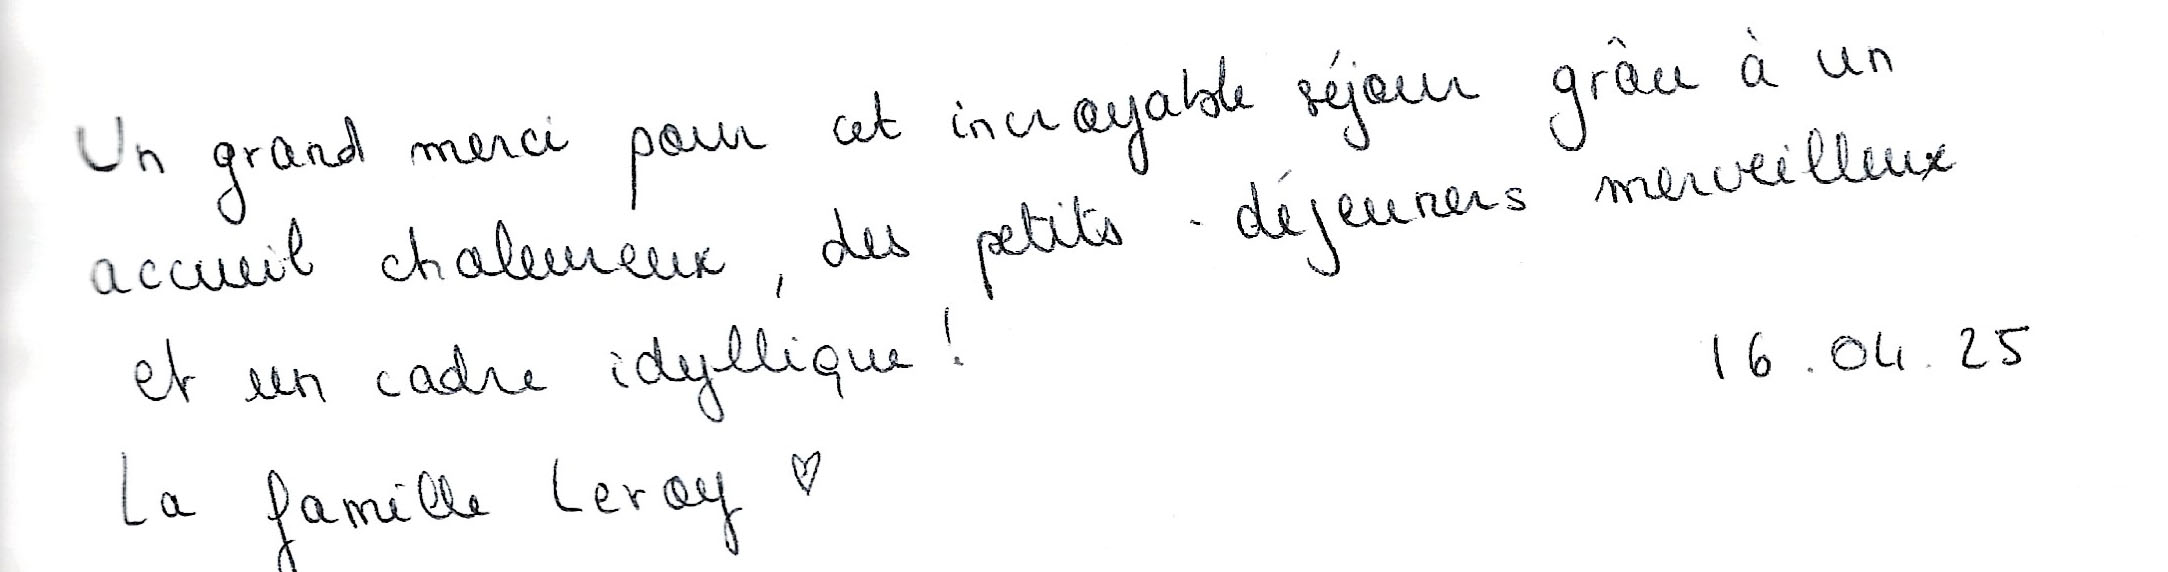 Un grand merci pour cet incroyable séjour grâce à un
accueil chaleureux, des petits-déjeuners merveilleux
et un cadre idyllique !
16.04.25
La famille Leroy ♡